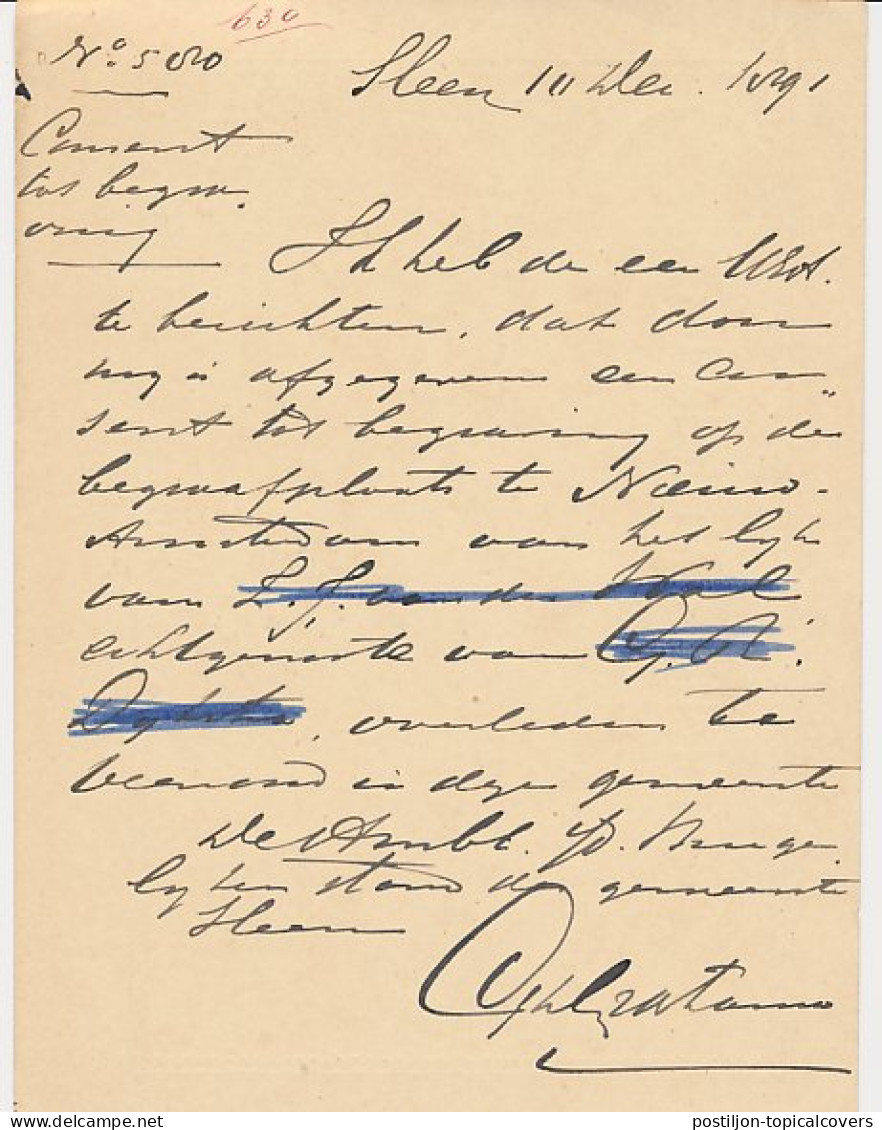 630
No 580
Sleen 10 Dec. 1891
Consent
tot begra-
ving
Ik heb de eer UEd.
te berichten, dat door
mij is afgegeven een con-
sent tot begraving op de
begraafplaats te Nieuw-
Amsterdam van het lijk
van L. J. van der Wal
echtgenoote van G. R.
Dijkstra, overleden te
Veenoord in deze gemeente
De Ambt. v. d. Burger-
lijken stand der gemeente
Sleen
postiljon-topicalcovers